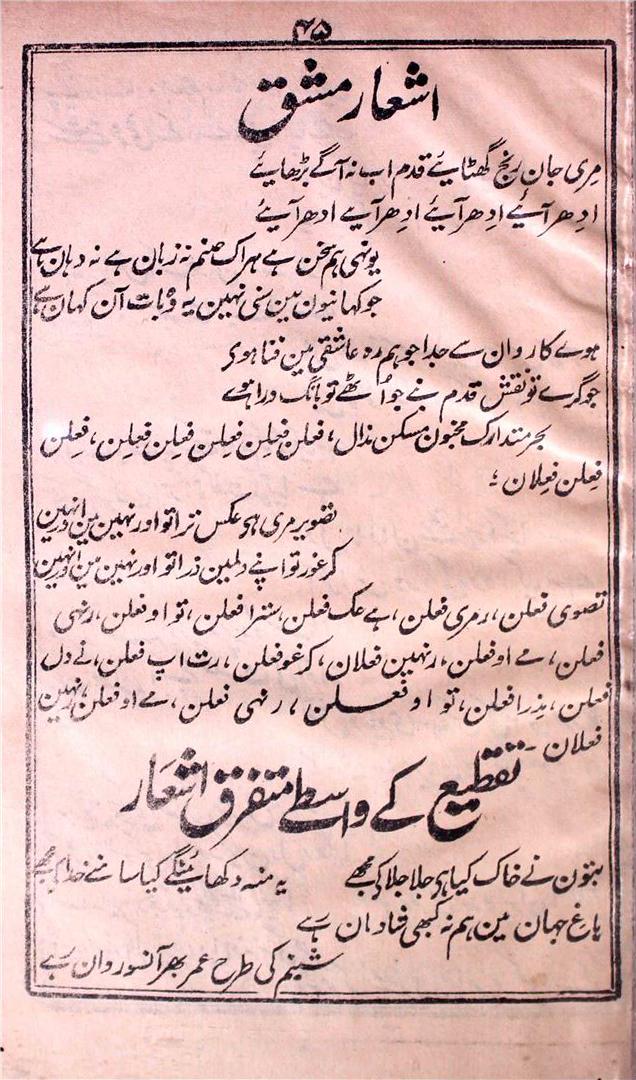 ۴۵
اشعار مشق
مری جان رنج گھٹایئے قدم اب نہ آگے بڑھایئے
ادھر آیئے ادھر آیئے ادھر آیئے ادھر آیئے
یونہی ہم سخن ہے ہراک صنم نہ زبان ہے نہ دہان ہے
جو کہانیون مین سنی نہین یہ وُہ بات آن کہان ہے
ہوے کاروان سے جدا جو ہم رہ عاشقی مین فنا ہوی
جو گرے تو نقش قدم بنے جو اُٹھے تو بانگ درا ہوے
بحر متدارک مخبون مسکن مذال، فعلن فعلن فعلن فعلن فعلن، فعلن
فعلن فعلان ؛
تصویر مری ہو عکس ترا تو اور نہین مین اور نہین
کر غور تو اپنے دلمین ذرا تو اور نہین مین اور نہین
تصوی فعلن، رمری فعلن، ہے عک فعلن، سترا فعلن، تو او فعلن، رنہی
فعلن، مے او فعلن، رنہین فعلان، کر غو فعلن، رت اپ فعلن، نے دل
فعلن، مِذرا فعلن، تو او فعلن، رنہی فعلن، مے او فعلن، رنہین
فعلان -
تقطیع کے واسطے متفرق اشعار
بتون نے خاک کیا ہی جلا جلا کی مجھے یہ منہ دکھائینگے کیا سامنے خدا کی مجھے
باغ جہان مین ہم نہ کبھی شادمان رہے
شبنم کی طرح عمر بھر آنسو روان رہے